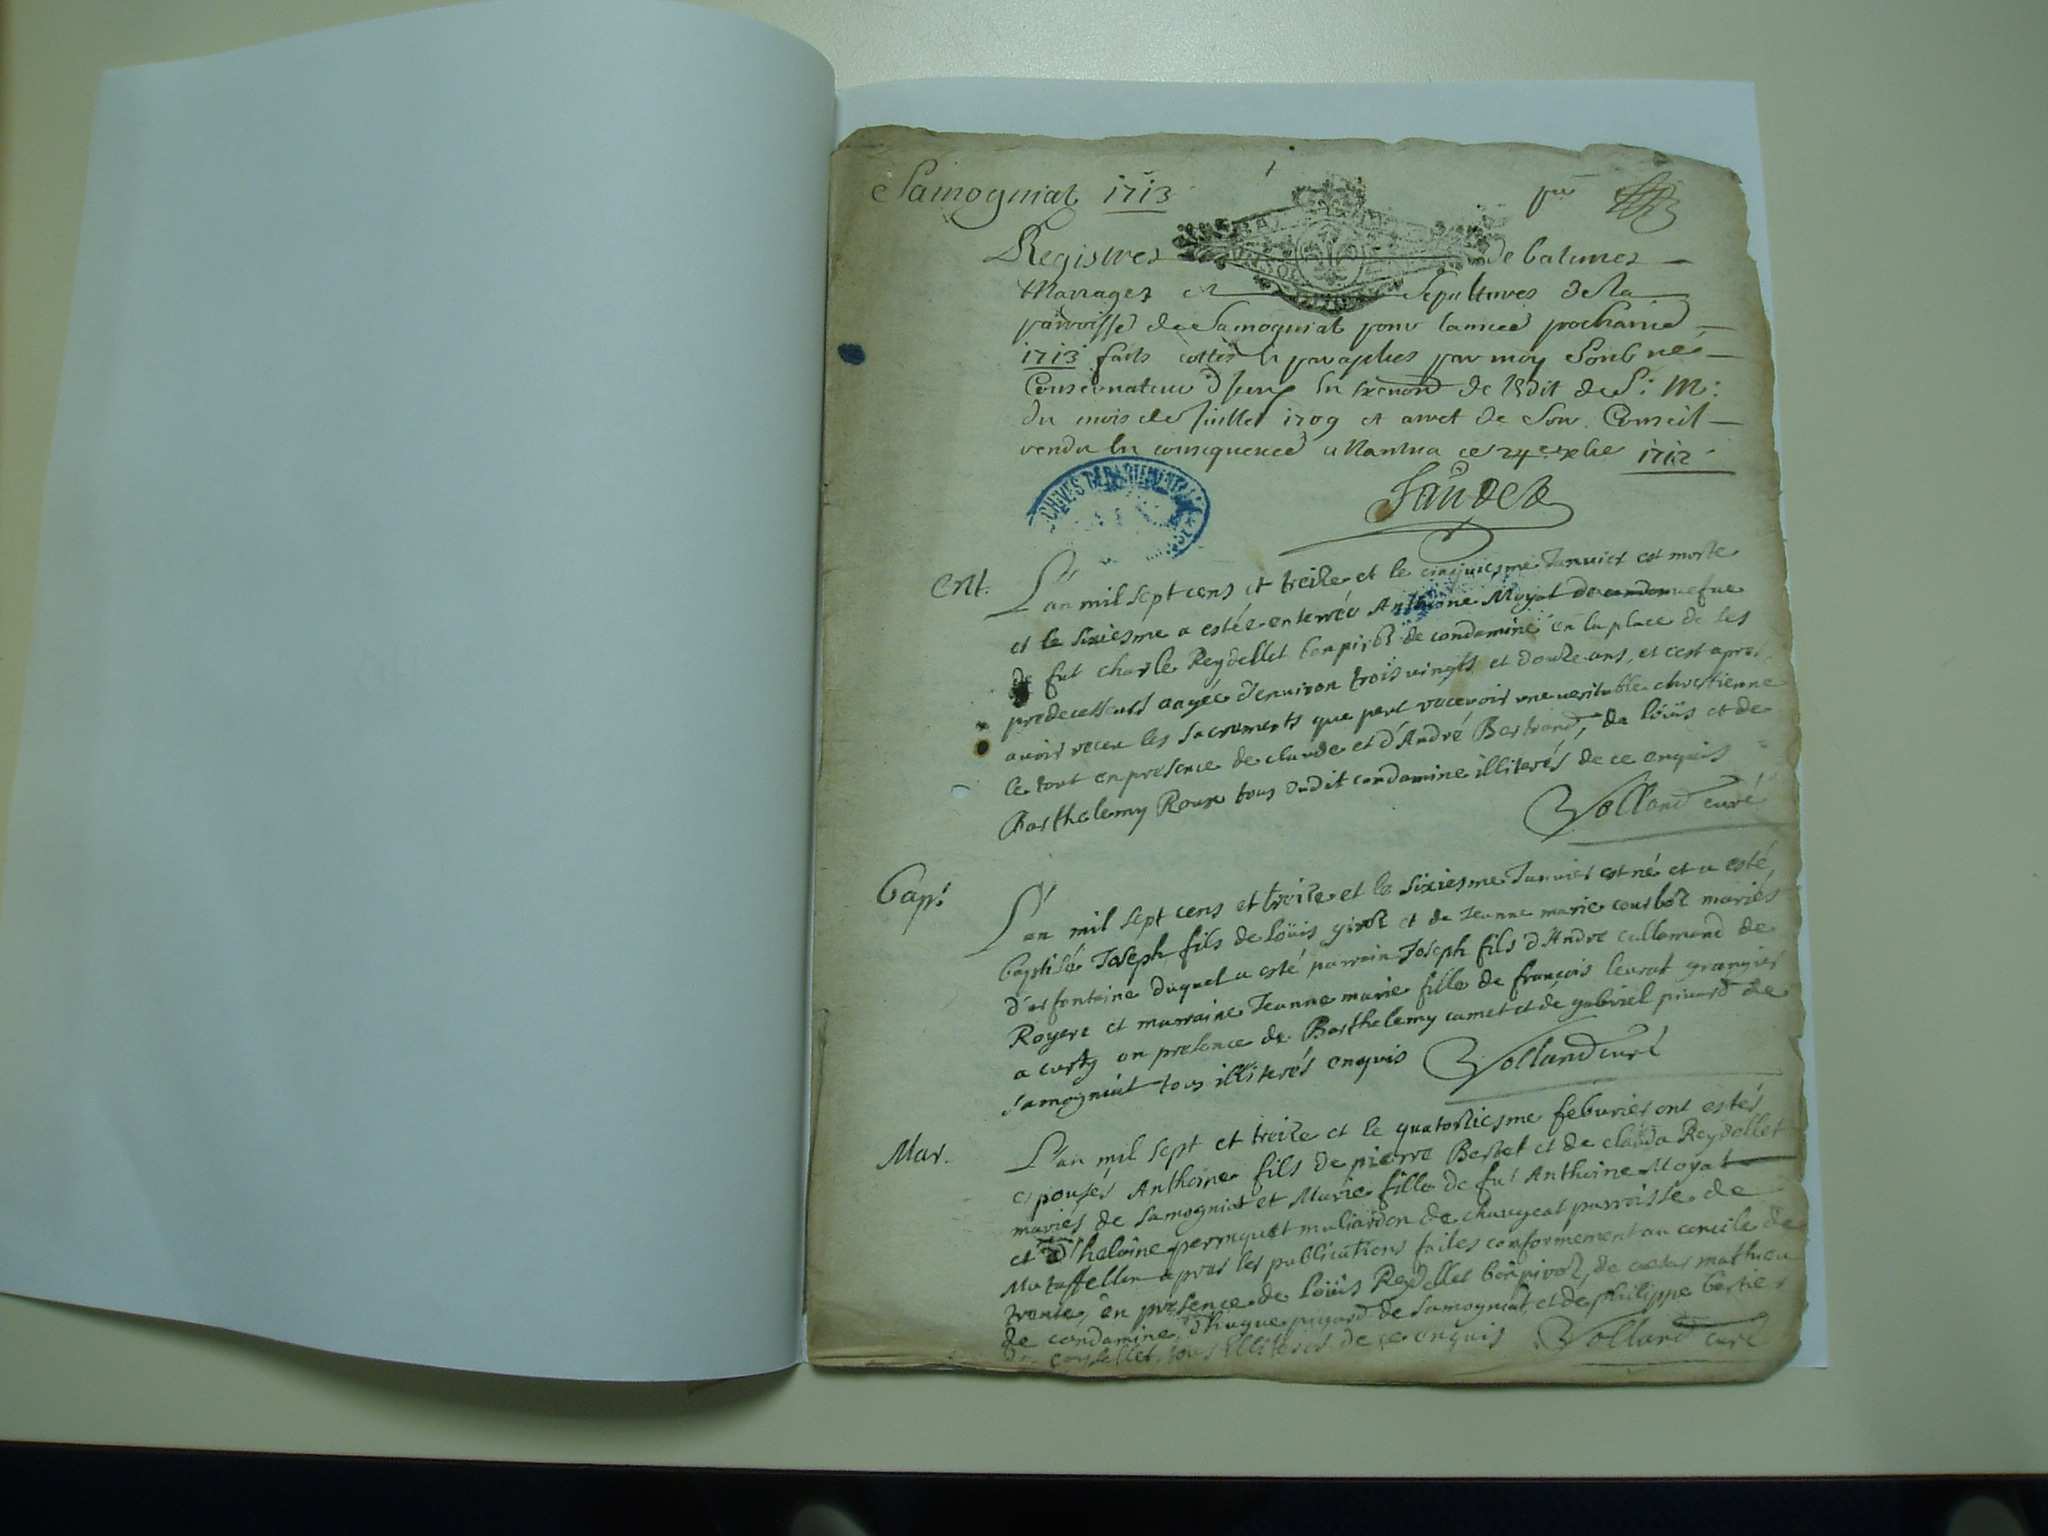 Samogniat 1713
1
pre
Registres de batemes
Mariages et Sepultures de la
parroisse de Samogniat pour lannee prochaine
1713 faits cottés et paraphes par moy Soubné
Conservateur en de l'Edit de S: M:
du mois de Juillet 1709 et arret de Son Conseil
rendu en consequence a Nantua ce 24e xbre 1712
CHIVES DEPARTEMENTALES
Ent.
L'an mil sept cens et treize et le cinquiesme Janvier est morte
et le sixiesme a estée enterrée Anthoine Moyat de vefue
de fut charle Reydellet bonpivoz de condamine en la place de ses
predecesseurs aagée d'environ trois vingts et douze ans, et c'est apres
avoir receu les sacrements que peut recevoir une veritable chrestienne
le tout en presence de claude et d'André Bertrand, de loüis et de
Barthelemy Roux tous dudit condamine illiterés de ce enquis
Volland curé
Bap.
L'an mil sept cens et treize et le sixiesme Janvier est né et a esté
baptisé Joseph fils de loüis giroz et de Jeanne marie courboz mariés
d'esfontaine duquel a esté parrain Joseph fils d'André callemand de
Royere et marraine Jeanne marie fille de françois levrat grangier
a en presence de Barthelemy camet et de gabriel picard de
samogniat tous illiterés enquis Volland curé
Mar.
L'an mil sept et treize et le quatorziesme feburier ont estés
epousés Anthoine fils de pierre Bertet et de clauda Reydellet
mariés de samogniat et Marie fille de fut Anthoine Moyat
et d'heloine perruquet maliardon de chaugeat parroisse de
Mataffellon apres les publications faites conformement au concile de
trente, en presence de loüis Reydellet bonpivoz, de mathieu
de condamine, d'hugue picard de samogniat, et de philippe bertier
tous illiterés de ce enquis Volland curé